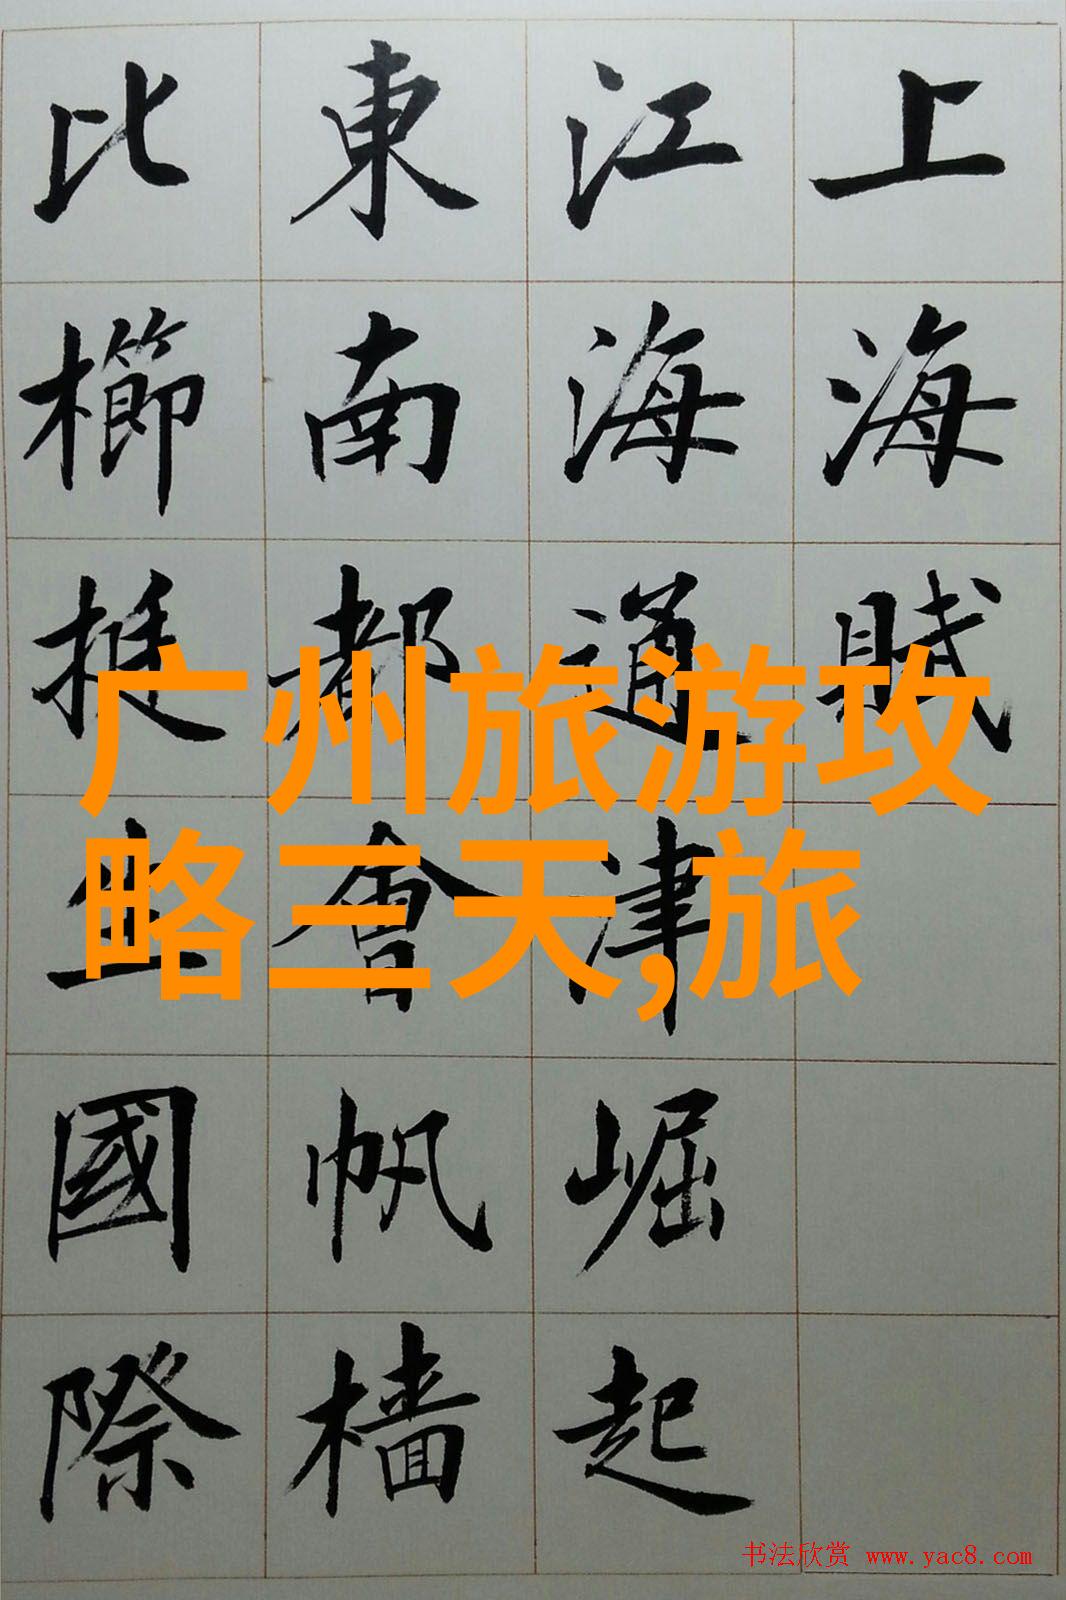 上海賦
江海通津崛起
東南都會帆檣
比櫛挺立國際
广州旅游攻
略三天,旅
书法欣赏 www.yac8.com